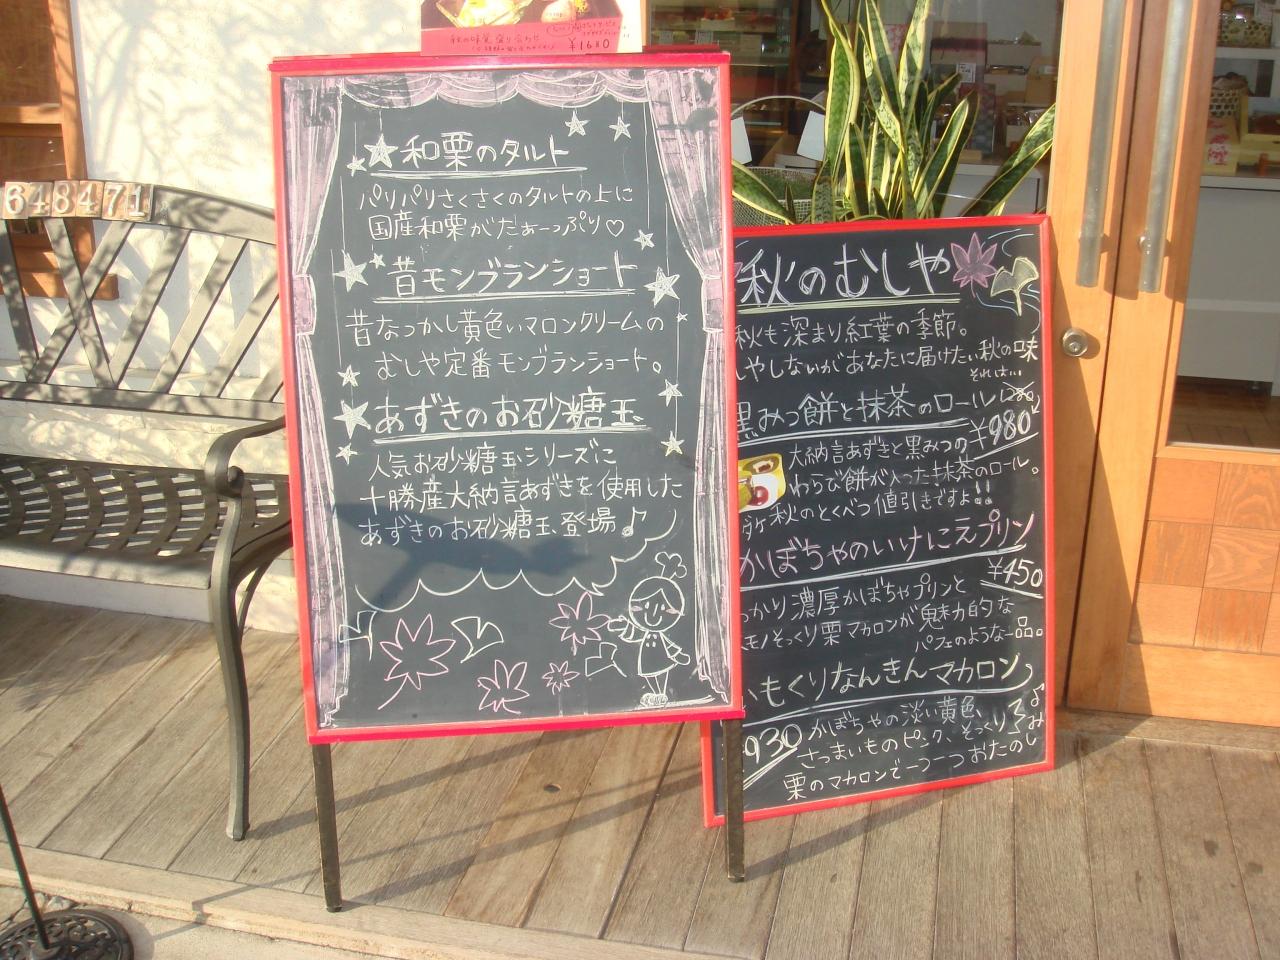 ¥1680
648471
和栗のタルト
パリパリさくさくのタルトの上に
国産和栗がたぁーっぷり♡
昔モンブランショート
昔なつかし黄色いマロンクリームの
むしや定番モンブランショート。
あずきのお砂糖玉
人気お砂糖玉シリーズに
十勝産大納言あずきを使用した
あずきのお砂糖玉登場♪
秋のむしや
秋も深まり紅葉の季節。
しやしないがあなたに届けたい秋の味
それは...
黒みつ餅と抹茶のロール
¥980
大納言あずきと黒みつの
わらび餅が入った抹茶のロール。
秋のとくべつ値引きですよ!!
かぼちゃのいけにえプリン
¥450
っかり濃厚かぼちゃプリンと
モノそっくり栗マカロンが魅力的な
パフェのような一品。
いもくりなんきんマカロン
930
かぼちゃの淡い黄色、
さつまいものピンク、そっくり
栗のマカロンで一つ一つおたのしみ